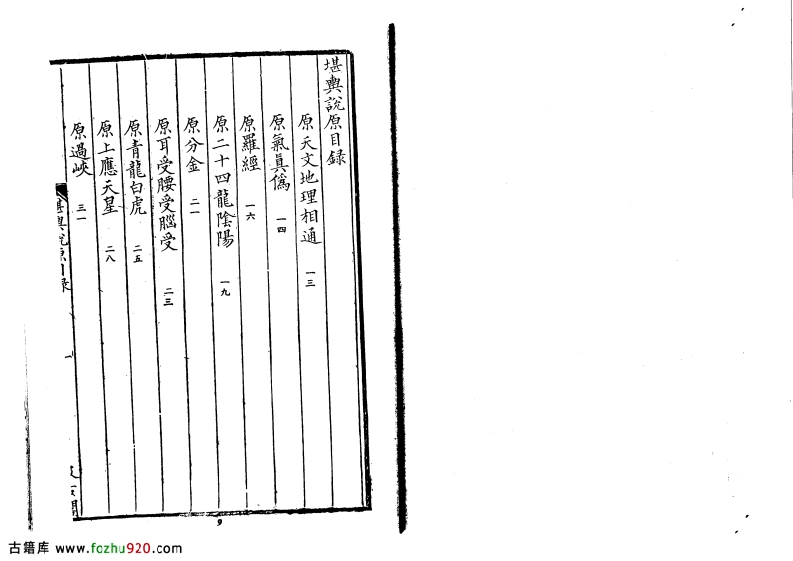 堪輿說原目錄
原天文地理相通 一三
原氣眞僞 一四
原羅經 一六
原二十四龍陰陽 一九
原分金 二一
原耳受腰受腦受 二三
原青龍白虎 二五
原上應天星 二八
原過峽 三一
堪輿說原目錄
9
古籍库 www.fozhu920.com